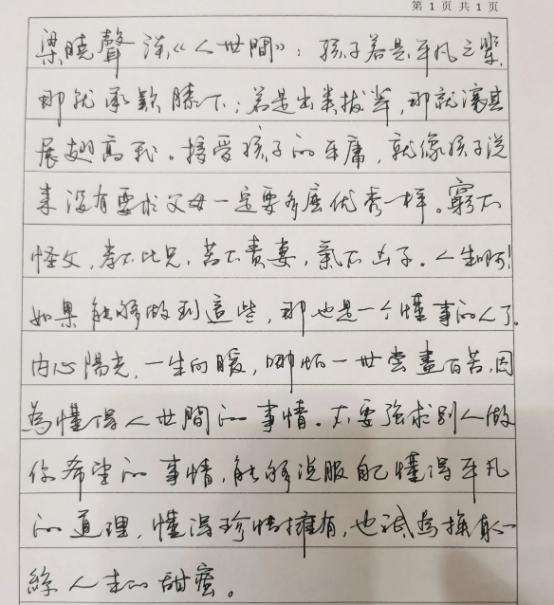 第 1 页 共 1 页
梁曉聲 《人世間》：孩子若是平凡之輩，
那就承歡膝下；若是出类拔萃，那就讓其
展翅高飛。接受孩子的平庸，就像孩子從
來没有要求父母一定要多麼优秀一样。窮不
怪父，孝不比兄，苦不責妻，氣不凶子。人生啊！
如果能够做到這些，那也是一个懂事的人了。
内心陽光，一生向暖，哪怕一世尝盡百苦，因
為懂得人世間的事情。不要强求别人做
你希望的事情，能够说服自己懂得平凡
的道理，懂得珍惜擁有，也誠為換取一
絲人生的甜蜜。